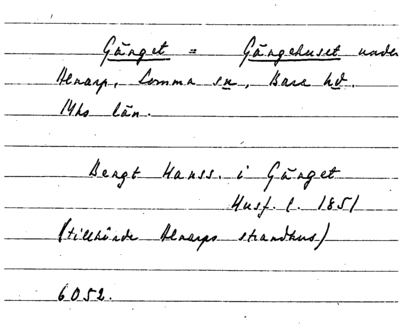 Gånget = Gångehuset under
Alnarp, Lomma sn, Bara hd.
Mhs län.
Bengt Hanss. i Gånget
Husf. l. 1851
(tillhörde Alnarps strandhus)
6052.